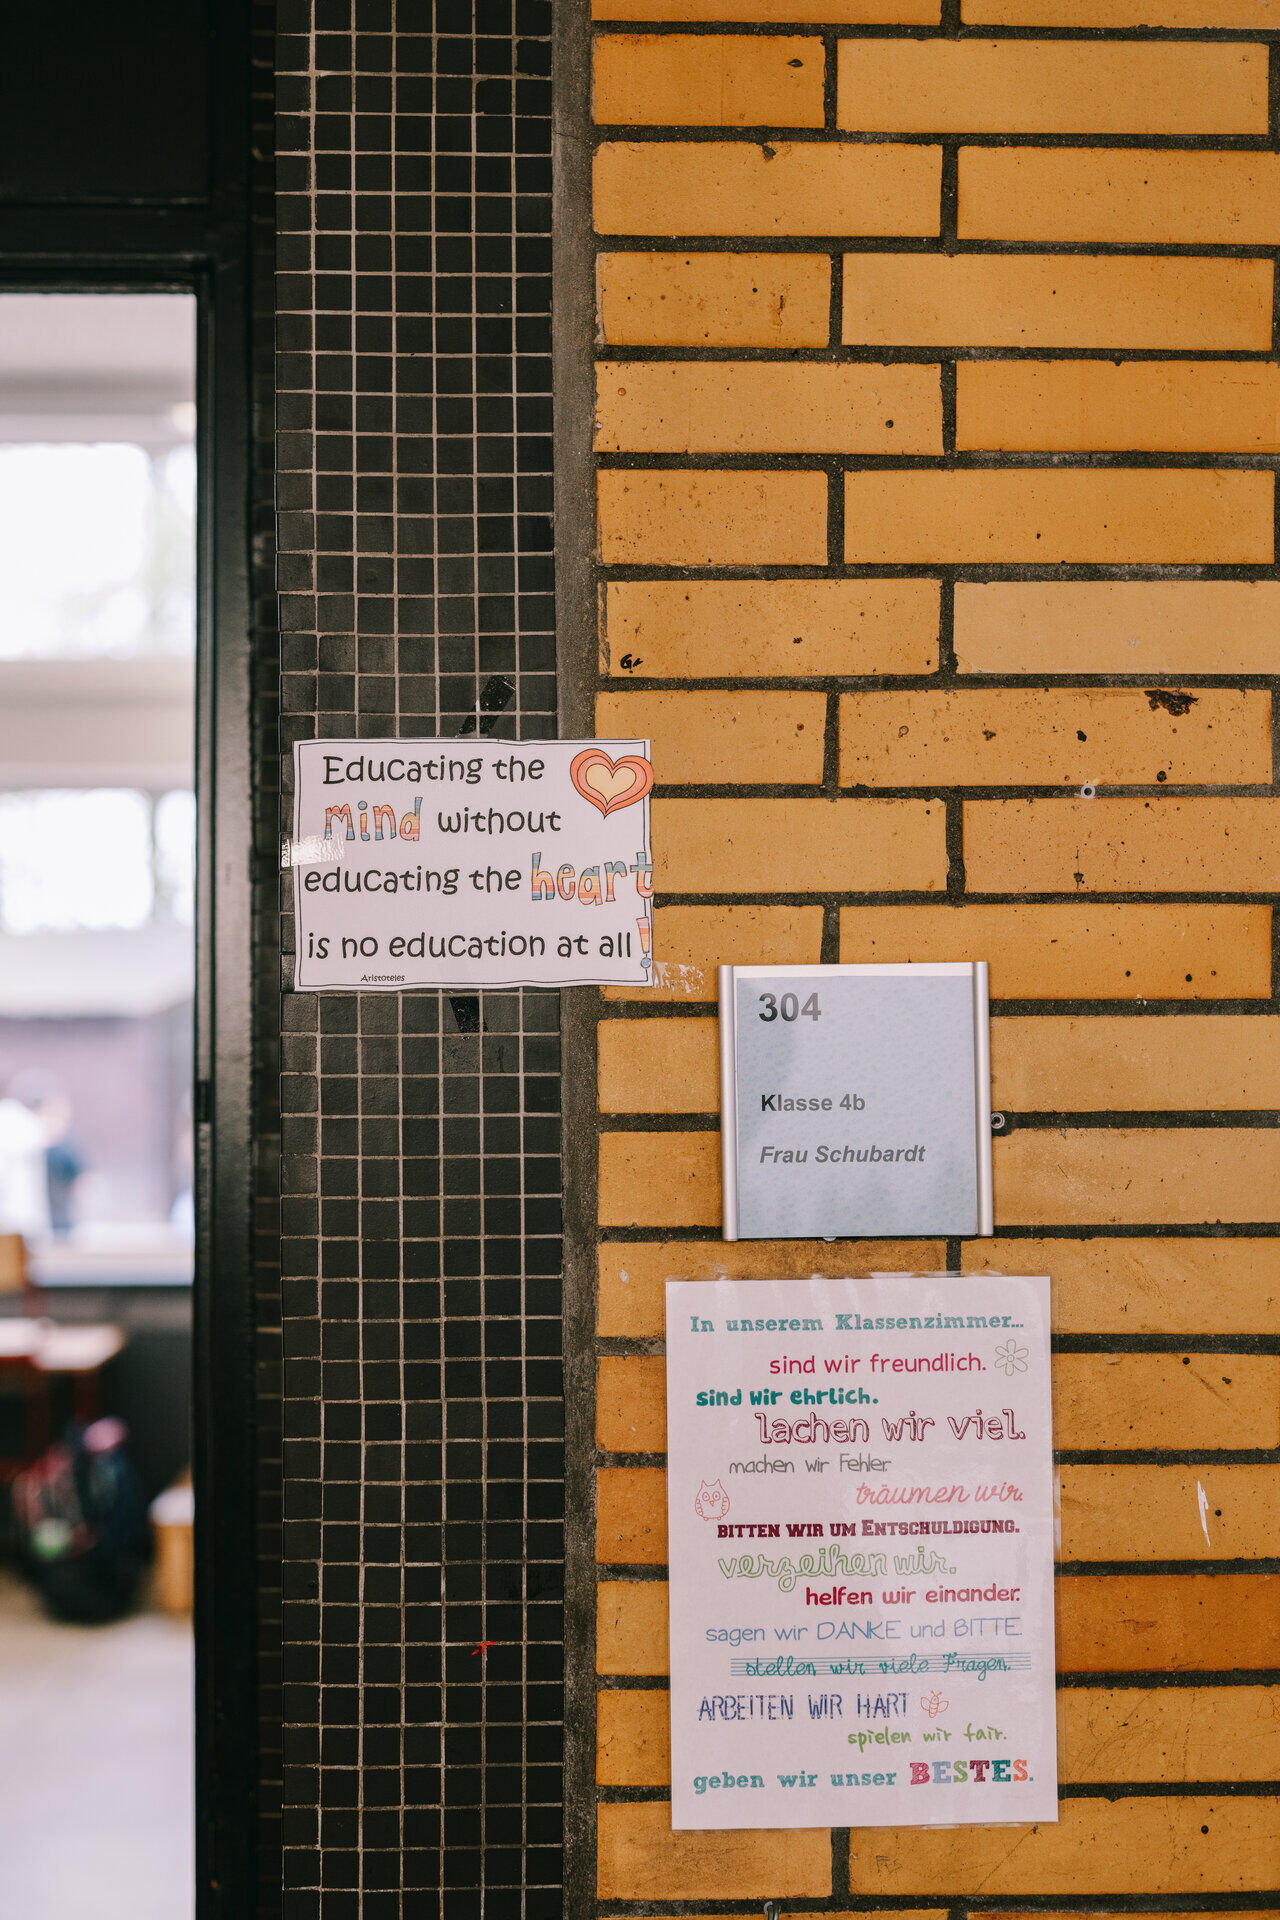 Educating the
mind without
educating the heart
is no education at all!
Aristoteles
304
Klasse 4b
Frau Schubardt
In unserem Klassenzimmer...
sind wir freundlich.
sind wir ehrlich.
lachen wir viel.
machen wir Fehler.
träumen wir.
BITTEN WIR UM ENTSCHULDIGUNG.
verzeihen wir.
helfen wir einander.
sagen wir DANKE und BITTE.
stellen wir viele Fragen.
ARBEITEN WIR HART
spielen wir fair.
geben wir unser BESTES.